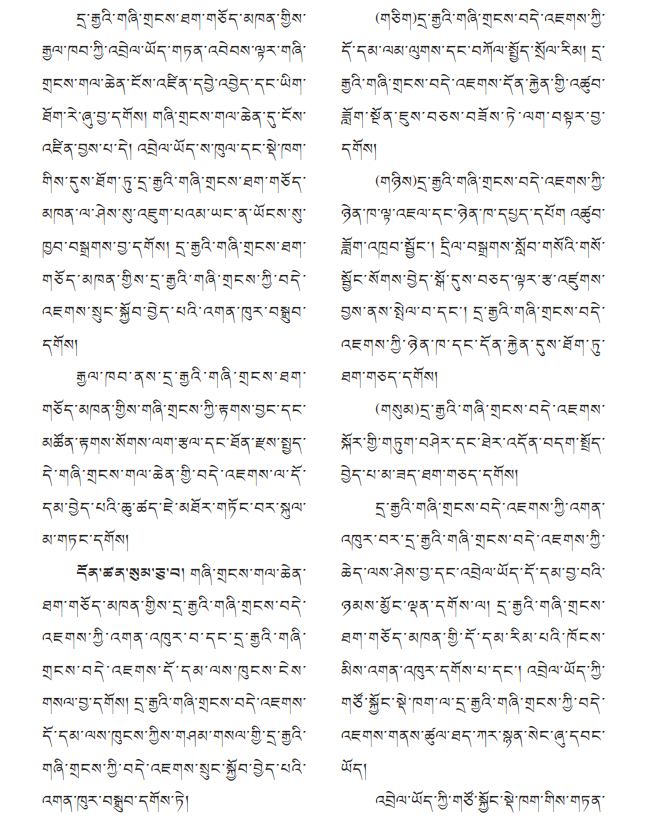 དྲ་རྒྱའི་གཞི་གྲངས་ཐག་གཅོད་མཁན་གྱིས་
རྒྱལ་ཁབ་ཀྱི་འབྲེལ་ཡོད་གཏན་འབེབས་ལྟར་གཞི་
གྲངས་གལ་ཆེན་ངོས་འཛིན་དབྱེ་འབྱེད་དང་ཡིག་
ཐོག་རེ་ཞུ་བྱ་དགོས། གཞི་གྲངས་གལ་ཆེན་དུ་ངོས་
འཛིན་བྱས་པ་དེ། འབྲེལ་ཡོད་ས་ཁུལ་དང་སྡེ་ཁག་
གིས་དུས་ཐོག་ཏུ་དྲ་རྒྱའི་གཞི་གྲངས་ཐག་གཅོད་
མཁན་ལ་ཤེས་སུ་འཇུག་པའམ་ཡང་ན་ཡོངས་སུ་
ཁྱབ་བསྒྲགས་བྱ་དགོས། དྲ་རྒྱའི་གཞི་གྲངས་ཐག་
གཅོད་མཁན་གྱིས་དྲ་རྒྱའི་གཞི་གྲངས་ཀྱི་བདེ་
འཇགས་སྲུང་སྐྱོབ་བྱེད་པའི་འགན་ཁུར་བསྒྲུབ་
དགོས།
རྒྱལ་ཁབ་ནས་དྲ་རྒྱའི་གཞི་གྲངས་ཐག་
གཅོད་མཁན་གྱིས་གཞི་གྲངས་ཀྱི་རྟགས་བྱང་དང་
མཚོན་རྟགས་སོགས་ལག་རྩལ་དང་ཐོན་རྫས་སྤྱད་
དེ་གཞི་གྲངས་གལ་ཆེན་གྱི་བདེ་འཇགས་ལ་དོ་
དམ་བྱེད་པའི་ཆུ་ཚད་ཇེ་མཐོར་གཏོང་བར་སྐུལ་
མ་གཏང་དགོས།
དོན་ཚན་སུམ་ཅུ་བ། གཞི་གྲངས་གལ་ཆེན་
ཐག་གཅོད་མཁན་གྱིས་དྲ་རྒྱའི་གཞི་གྲངས་བདེ་
འཇགས་ཀྱི་འགན་འཁུར་བ་དང་དྲ་རྒྱའི་གཞི་
གྲངས་བདེ་འཇགས་དོ་དམ་ལས་ཁུངས་ངེས་
གསལ་བྱ་དགོས། དྲ་རྒྱའི་གཞི་གྲངས་བདེ་འཇགས་
དོ་དམ་ལས་ཁུངས་ཀྱིས་གཤམ་གསལ་གྱི་དྲ་རྒྱའི་
གཞི་གྲངས་ཀྱི་བདེ་འཇགས་སྲུང་སྐྱོབ་བྱེད་པའི་
འགན་ཁུར་བསྒྲུབ་དགོས་ཏེ།
(གཅིག)དྲ་རྒྱའི་གཞི་གྲངས་བདེ་འཇགས་ཀྱི་
དོ་དམ་ལམ་ལུགས་དང་བཀོལ་སྤྱོད་སྲོལ་རིམ། དྲ་
རྒྱའི་གཞི་གྲངས་བདེ་འཇགས་དོན་རྐྱེན་གྱི་འཚུབ་
ཟློག་སྔོན་དཔག་བཅས་བཟོས་ཏེ་ལག་བསྟར་བྱ་
དགོས།
(གཉིས)དྲ་རྒྱའི་གཞི་གྲངས་བདེ་འཇགས་ཀྱི་
ཉེན་ཁ་ལྟ་འཇལ་དང་ཉེན་ཁ་དཔྱད་དཔོག འཚུབ་
ཟློག་འཁྲབ་སྦྱོང་། དྲིལ་བསྒྲགས་སློབ་གསོའི་གསོ་
སྦྱོང་སོགས་བྱེད་སྒོ་དུས་བཅད་ལྟར་རྩ་འཛུགས་
བྱས་ནས་སྤེལ་བ་དང་། དྲ་རྒྱའི་གཞི་གྲངས་བདེ་
འཇགས་ཀྱི་ཉེན་ཁ་དང་དོན་རྐྱེན་དུས་ཐོག་ཏུ་
ཐག་གཅད་དགོས།
(གསུམ)དྲ་རྒྱའི་གཞི་གྲངས་བདེ་འཇགས་
སྐོར་གྱི་གཏུག་བཤེར་དང་ཐེར་འདོན་བདག་སྤྲོད་
བྱེད་པ་མ་ཟད་ཐག་གཅད་དགོས།
དྲ་རྒྱའི་གཞི་གྲངས་བདེ་འཇགས་ཀྱི་འགན་
འཁུར་བར་དྲ་རྒྱའི་གཞི་གྲངས་བདེ་འཇགས་ཀྱི་
ཆེད་ལས་ཤེས་བྱ་དང་འབྲེལ་ཡོད་དོ་དམ་བྱ་བའི་
ཉམས་མྱོང་ལྡན་དགོས་ལ། དྲ་རྒྱའི་གཞི་གྲངས་
ཐག་གཅོད་མཁན་གྱི་དོ་དམ་རིམ་པའི་ཁོངས་
མིས་འགན་འཁུར་དགོས་པ་དང་། འབྲེལ་ཡོད་ཀྱི་
གཙོ་སྐྱོང་སྡེ་ཁག་ལ་དྲ་རྒྱའི་གཞི་གྲངས་ཀྱི་བདེ་
འཇགས་གནས་ཚུལ་ཐད་ཀར་སྙན་སེང་ཞུ་དབང་
ཡོད།
འབྲེལ་ཡོད་ཀྱི་གཙོ་སྐྱོང་སྡེ་ཁག་གིས་གཏན་